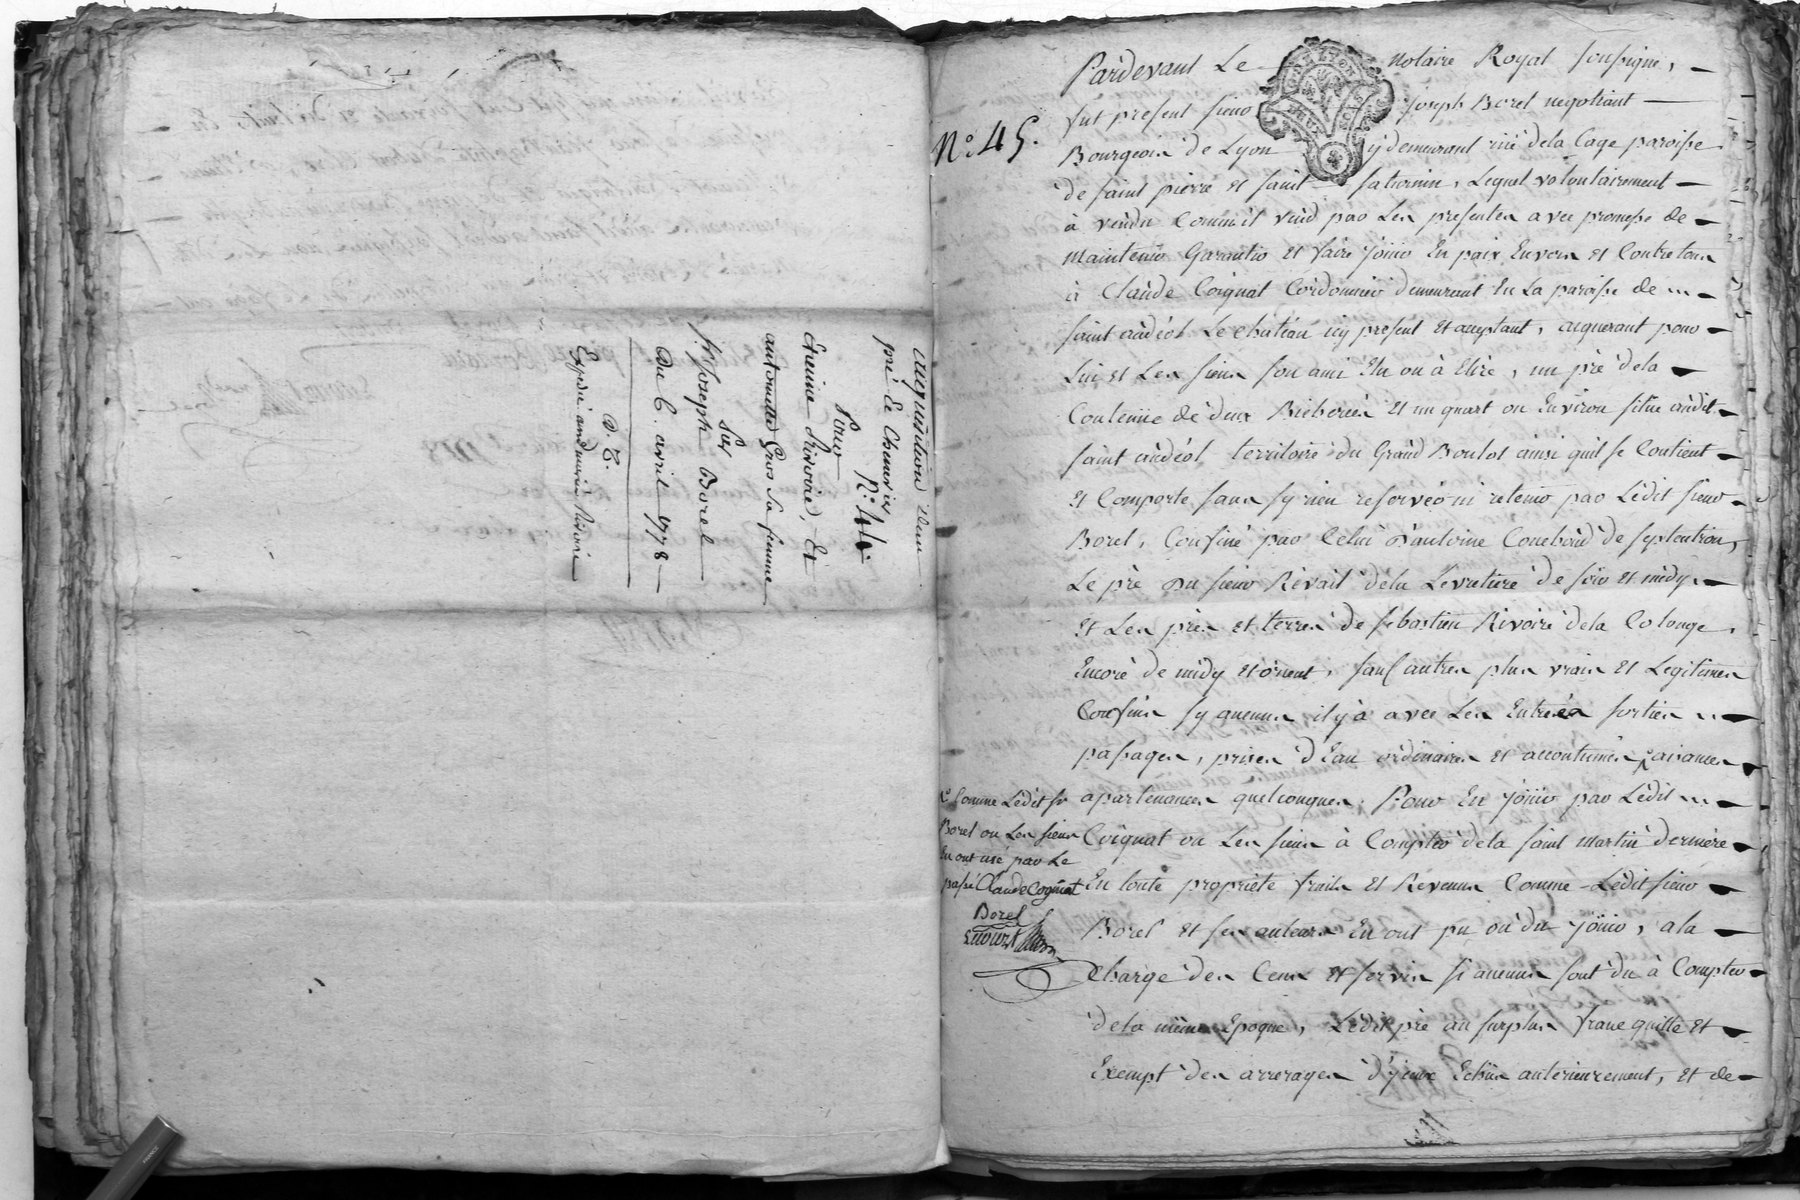 acquisition d'un
pré et Chenevier
N.° 44.
Pour
Etienne Rivoire, Et
antoinette Gros sa femme
Sur
Sr. Joseph Borel
Du 6. avril 1778
D. E.
Expedié aud. marié Rivoire
N.° 45.
Pardevant Le notaire Royal soussigné,
fut present sieur Joseph Borel negotiant
Bourgeois de Lyon y demeurant rüe dela Cage paroisse
de saint pierre et saint saturnin, Lequel volontairement
à vendu Comm'il vend par Les presentes avec promesse de
Maintenir Garantir et faire joüir En paix Envers et Contre tous
à Claude Coignat Cordonnier demeurant En La paroisse de
saint andéol Le chatéau icy present et acceptant, acquerant pour
Lui et Les siens son ami Elu ou à Elire, un pré dela
Contenüe de deux Bicherées et un quart ou Environ situé audit
saint andéol territoire du Grand Boulot ainsi quil se Contient
et Comporte sans sy rien reserver ni retenir par Ledit sieur
Borel, Confiné par Celui d'antoine Couchoud de septentrion,
Le pré du sieur Révail dela Levratiere de soir et midy
et Les prés et terres de sebastien Rivoire dela Colonge,
Encore de midy et orient, sauf autres plus vrais et Legitimes
Confins sy aucuns il y à avec Les Entrées sorties
passages, prises d'Eau ordinaires et accoutumées aisances
apartenances quelconques. Pour En joüir par Ledit
Coignat ou Les siens à Compter dela saint martin derniere
En toute propriete fruits et Revenus Comme Ledit sieur
Borel et ses auteurs En ont pu ou du joüir, ala
Charge des Cens et servis si aucuns sont du à Compter
dela même Epoque, Ledit pré au surplus franc quitte et
Exempt des arrerages d'yceux Echus anterieurement, et de
Comme Ledit Sr
Borel ou Les siens
En ont usé par Le
passé Claude Cogniat
Borel